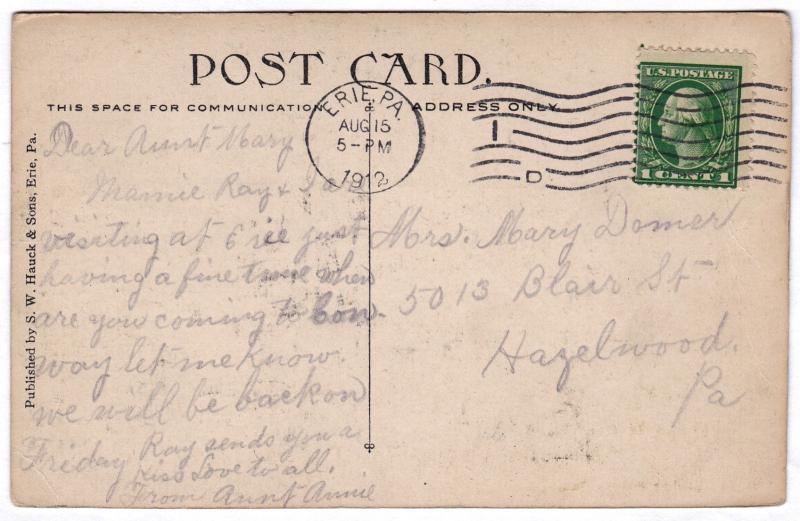 POST CARD.
THIS SPACE FOR COMMUNICATION
ADDRESS ONLY.
ERIE, PA.
AUG 15
5-PM
1912
1
D
U.S. POSTAGE
1 CENT 1
Published by S. W. Hauck & Sons, Erie, Pa.
Dear Aunt Mary
Mamie Ray & I are
visiting at Erie just
having a fine time when
are you coming to Con-
way let me know.
we will be back on
Friday Ray sends you a
kiss Love to all.
From Aunt Annie
Mrs. Mary Domer
5013 Blair St
Hazelwood.
Pa